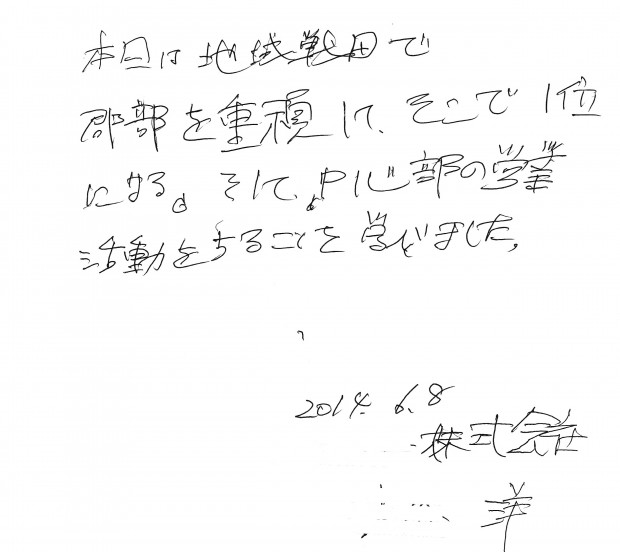 本日は地域戦略で
郡部を重視して、そこで1位
になる。そして、中心部の営業
活動をすることを学びました。
2014.6.8
株式会社
洋